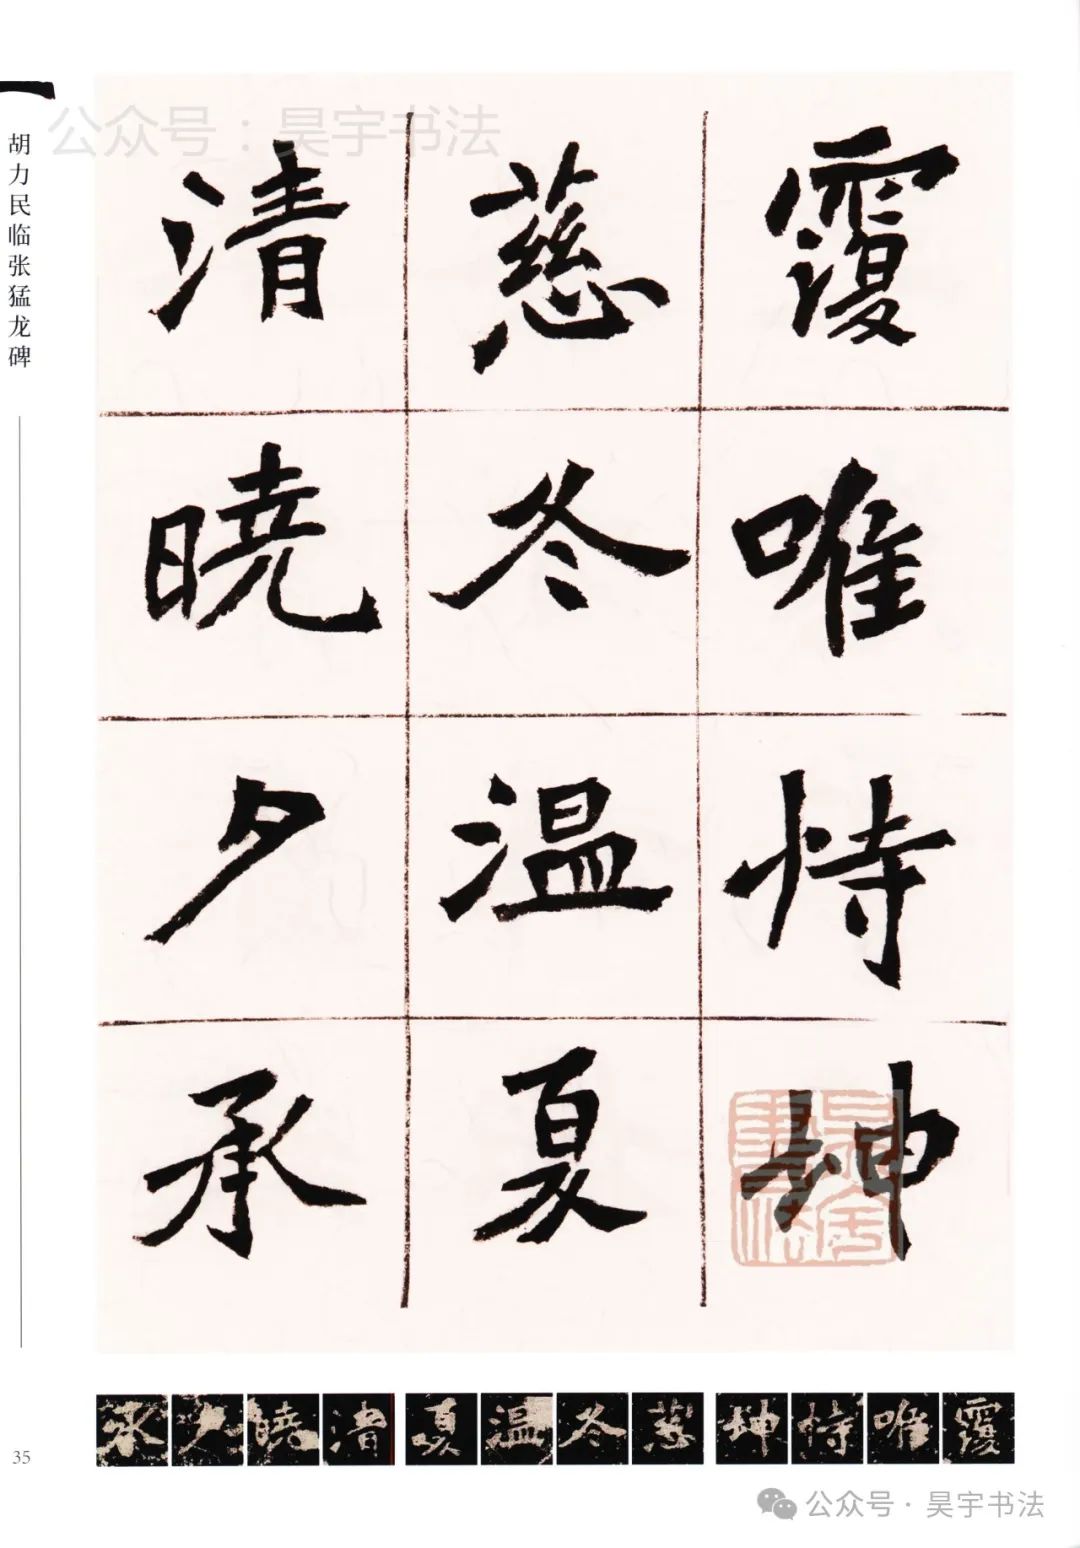 公众号：昊宇书法
胡力民临张猛龙碑
覆唯恃坤
慈冬温夏
清晓夕承
承夕晓清夏温冬慈坤恃唯覆
35
公众号·昊宇书法